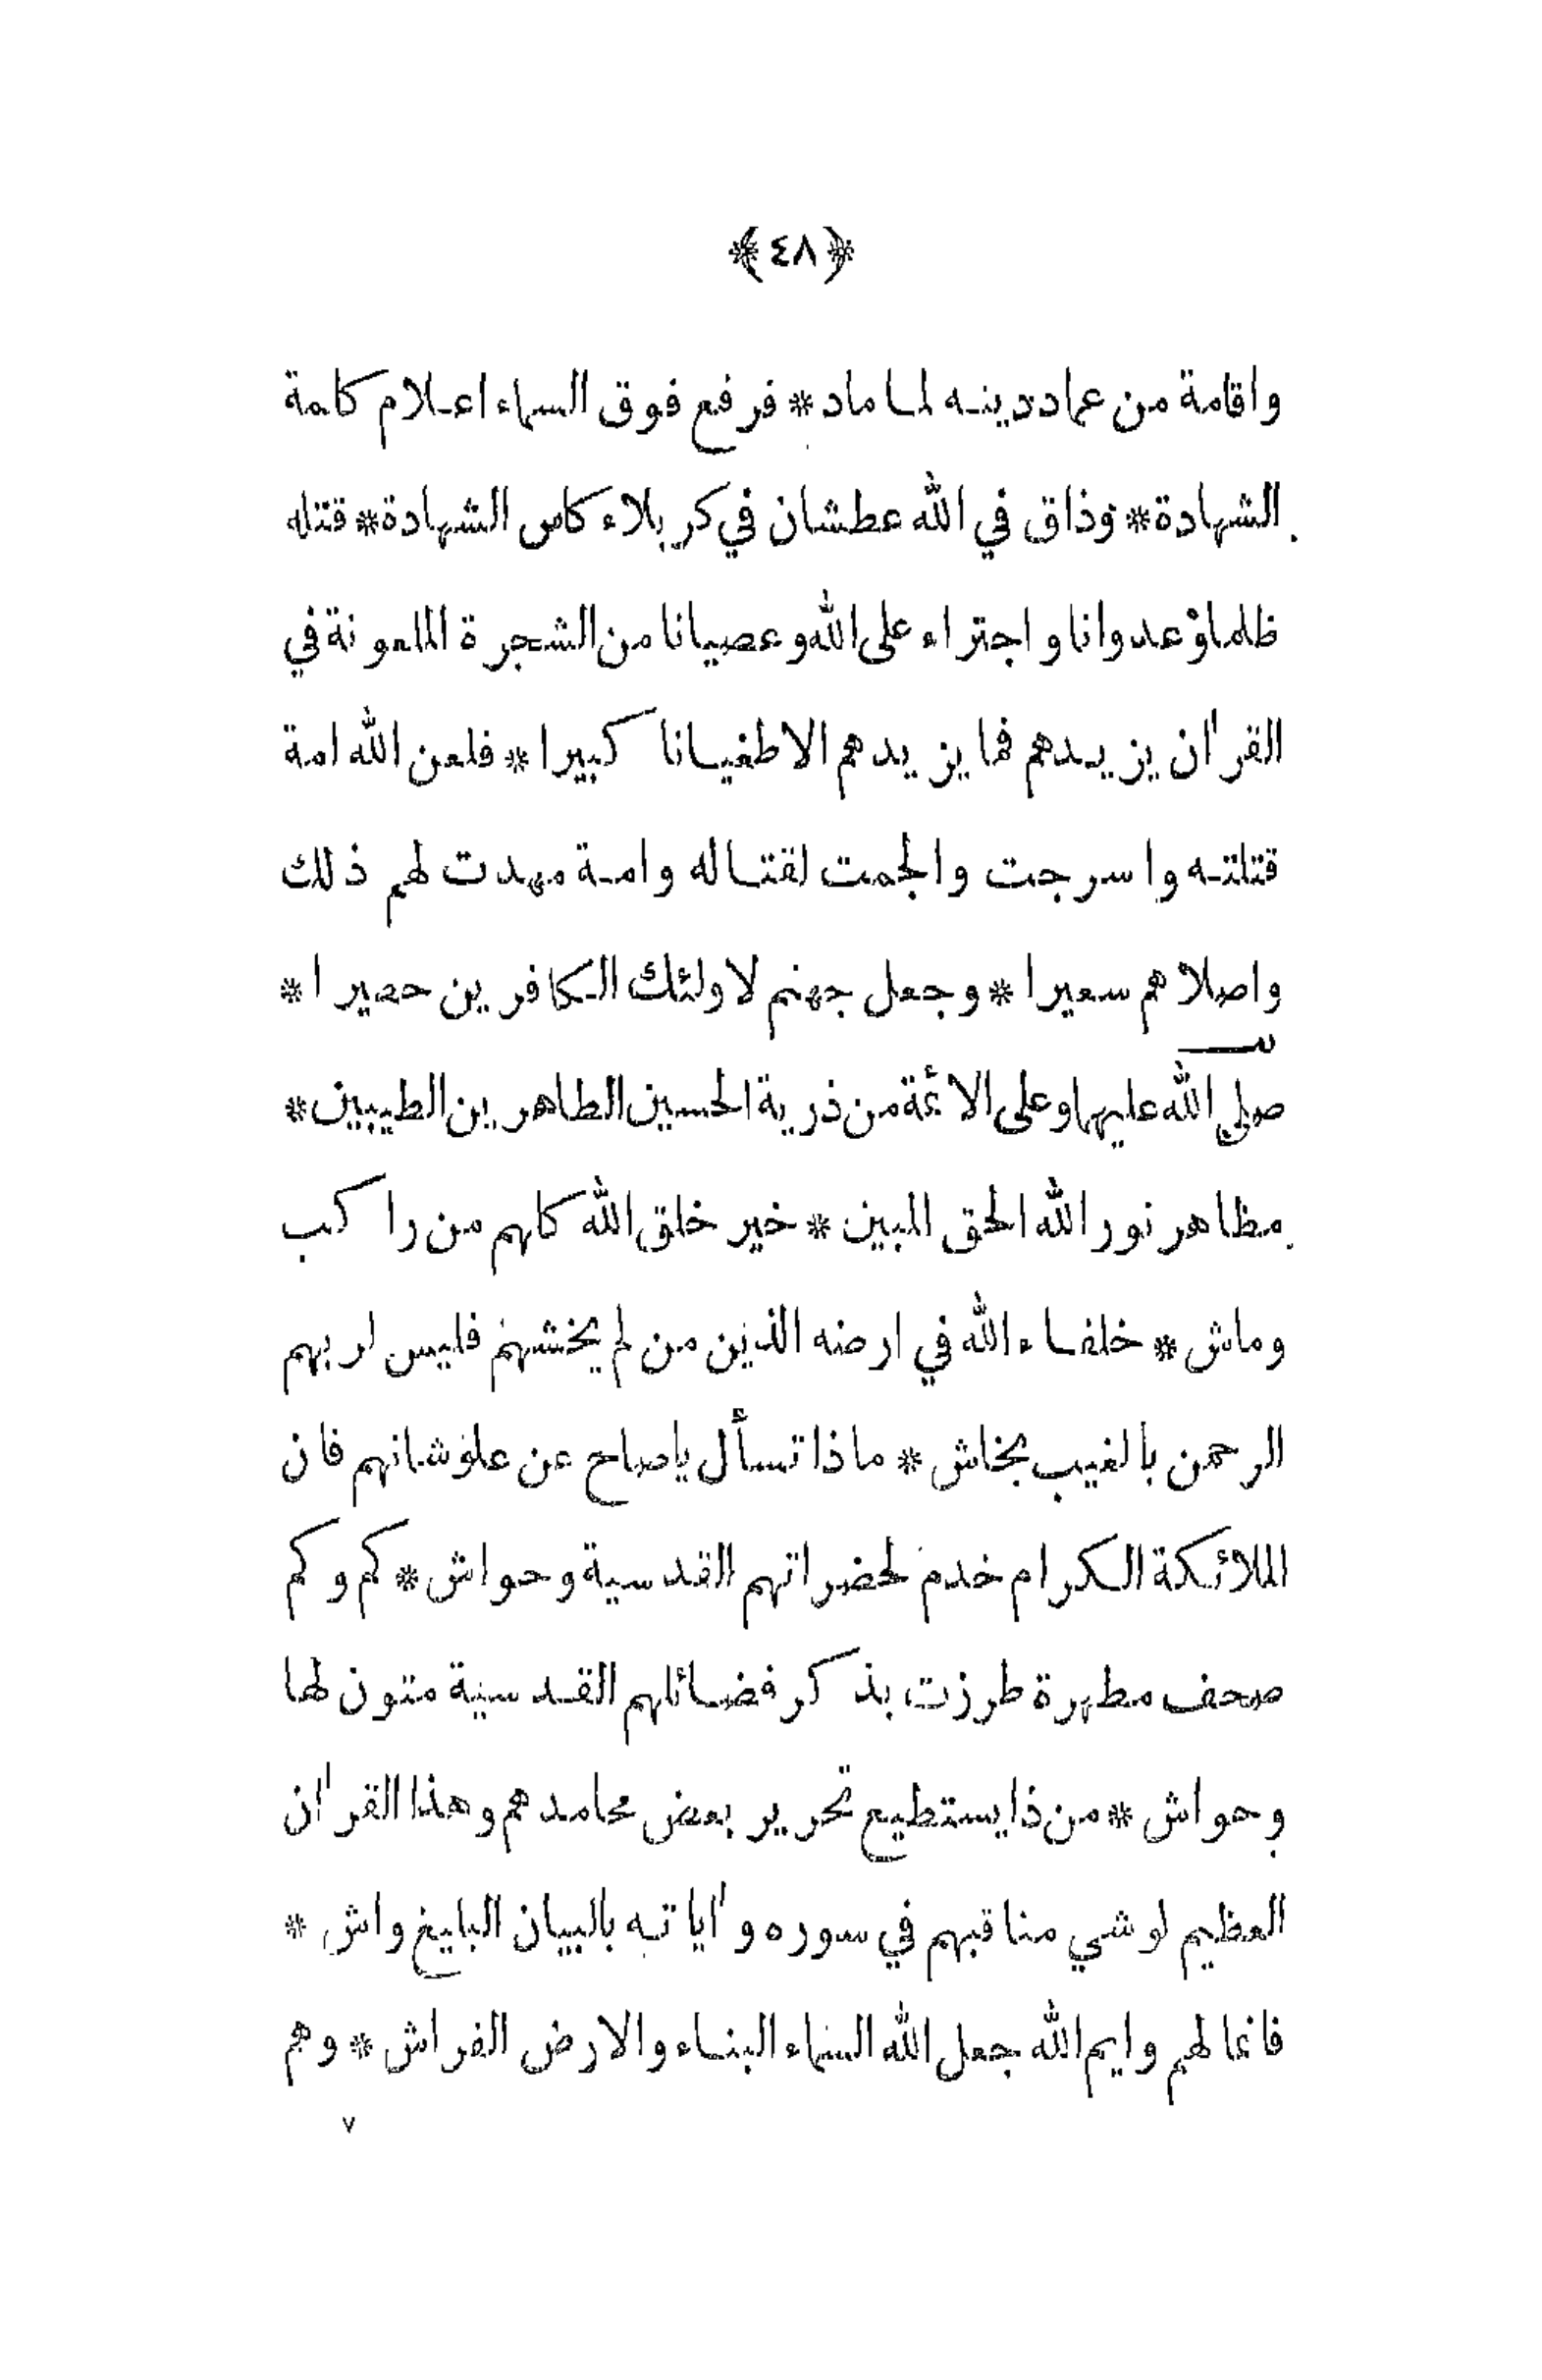 ﴿ ٤٨ ﴾
واقامة من عماد دينه لما ماد * فرفع فوق السماء اعلام كلمة
الشهادة * وذاق في الله عطشان في كربلاء كاس الشهادة * قتله
ظلما وعدوانا واجتراء على الله وعصيانا من الشجرة الملعونة في
القرآن يزيدهم فما يزيدهم الا طغيانا كبيرا * فلعن الله امة
قتلته واسرجت والجمت لقتاله وامة مهدت لهم ذلك
واصلاهم سعيرا * وجعل جهنم لاولئك الكافرين حصيرا *
صلى الله عليهما وعلى الائمة من ذرية الحسين الطاهرين الطيبين *
مظاهر نور الله الحق المبين * خير خلق الله كلهم من راكب
وماش * خلفاء الله في ارضه الذين من لم يخشهم فليس لربهم
الرحمن بالغيب بخاش * ماذا تسأل ياصاح عن علو شانهم فان
الملائكة الكرام خدم لحضراتهم القدسية وحواش * كم وكم
صحف مطهرة طرزت بذكر فضائلهم القدسية متون لها
وحواش * من ذا يستطيع تحرير بعض محامدهم وهذا القرآن
العظيم لوشي مناقبهم في سوره وآياته بالبيان البليغ واش *
فانما لهم وايم الله جعل الله السماء البناء والارض الفراش * وهم
٧